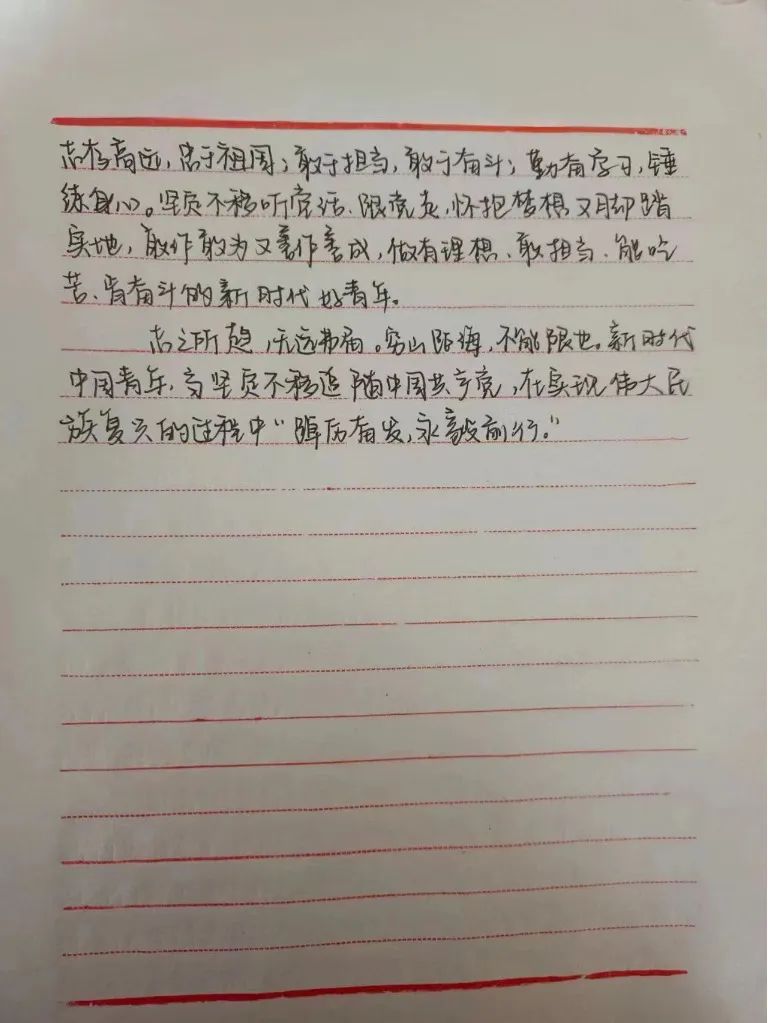 志存高远,忠于祖国;敢于担当,敢于奋斗;勤奋学习,锤
练身心。坚定不移听党话、跟党走,怀抱梦想又脚踏
实地,敢作敢为又善作善成,做有理想、敢担当、能吃
苦、肯奋斗的新时代好青年。
志之所趋,无远弗届。穷山距海,不能限也。新时代
中国青年,当坚定不移追随中国共产党,在实现伟大民
族复兴的过程中“踔厉奋发,永毅前行。”